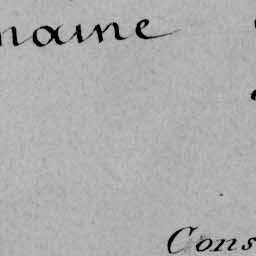 maine
Cons